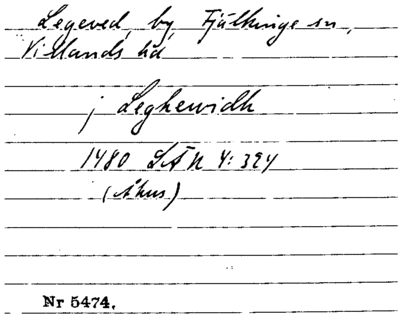 Legeved, by, Fjälkinge sn,
Villands hd
j Leghewidh
1480 SÄN 4:324
(Åhus)
Nr 5474.